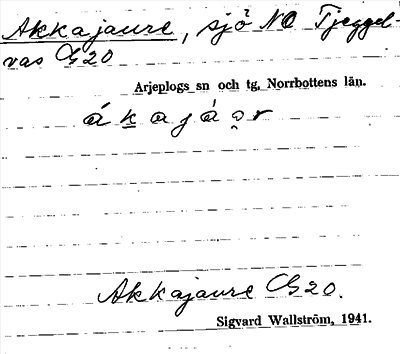 Akkajaure, sjö NO Tjeggel-
vas G20
Arjeplogs sn och tg, Norrbottens län.
á k̲ a j á o̜ r
Akkajaure G20.
Sigvard Wallström, 1941.